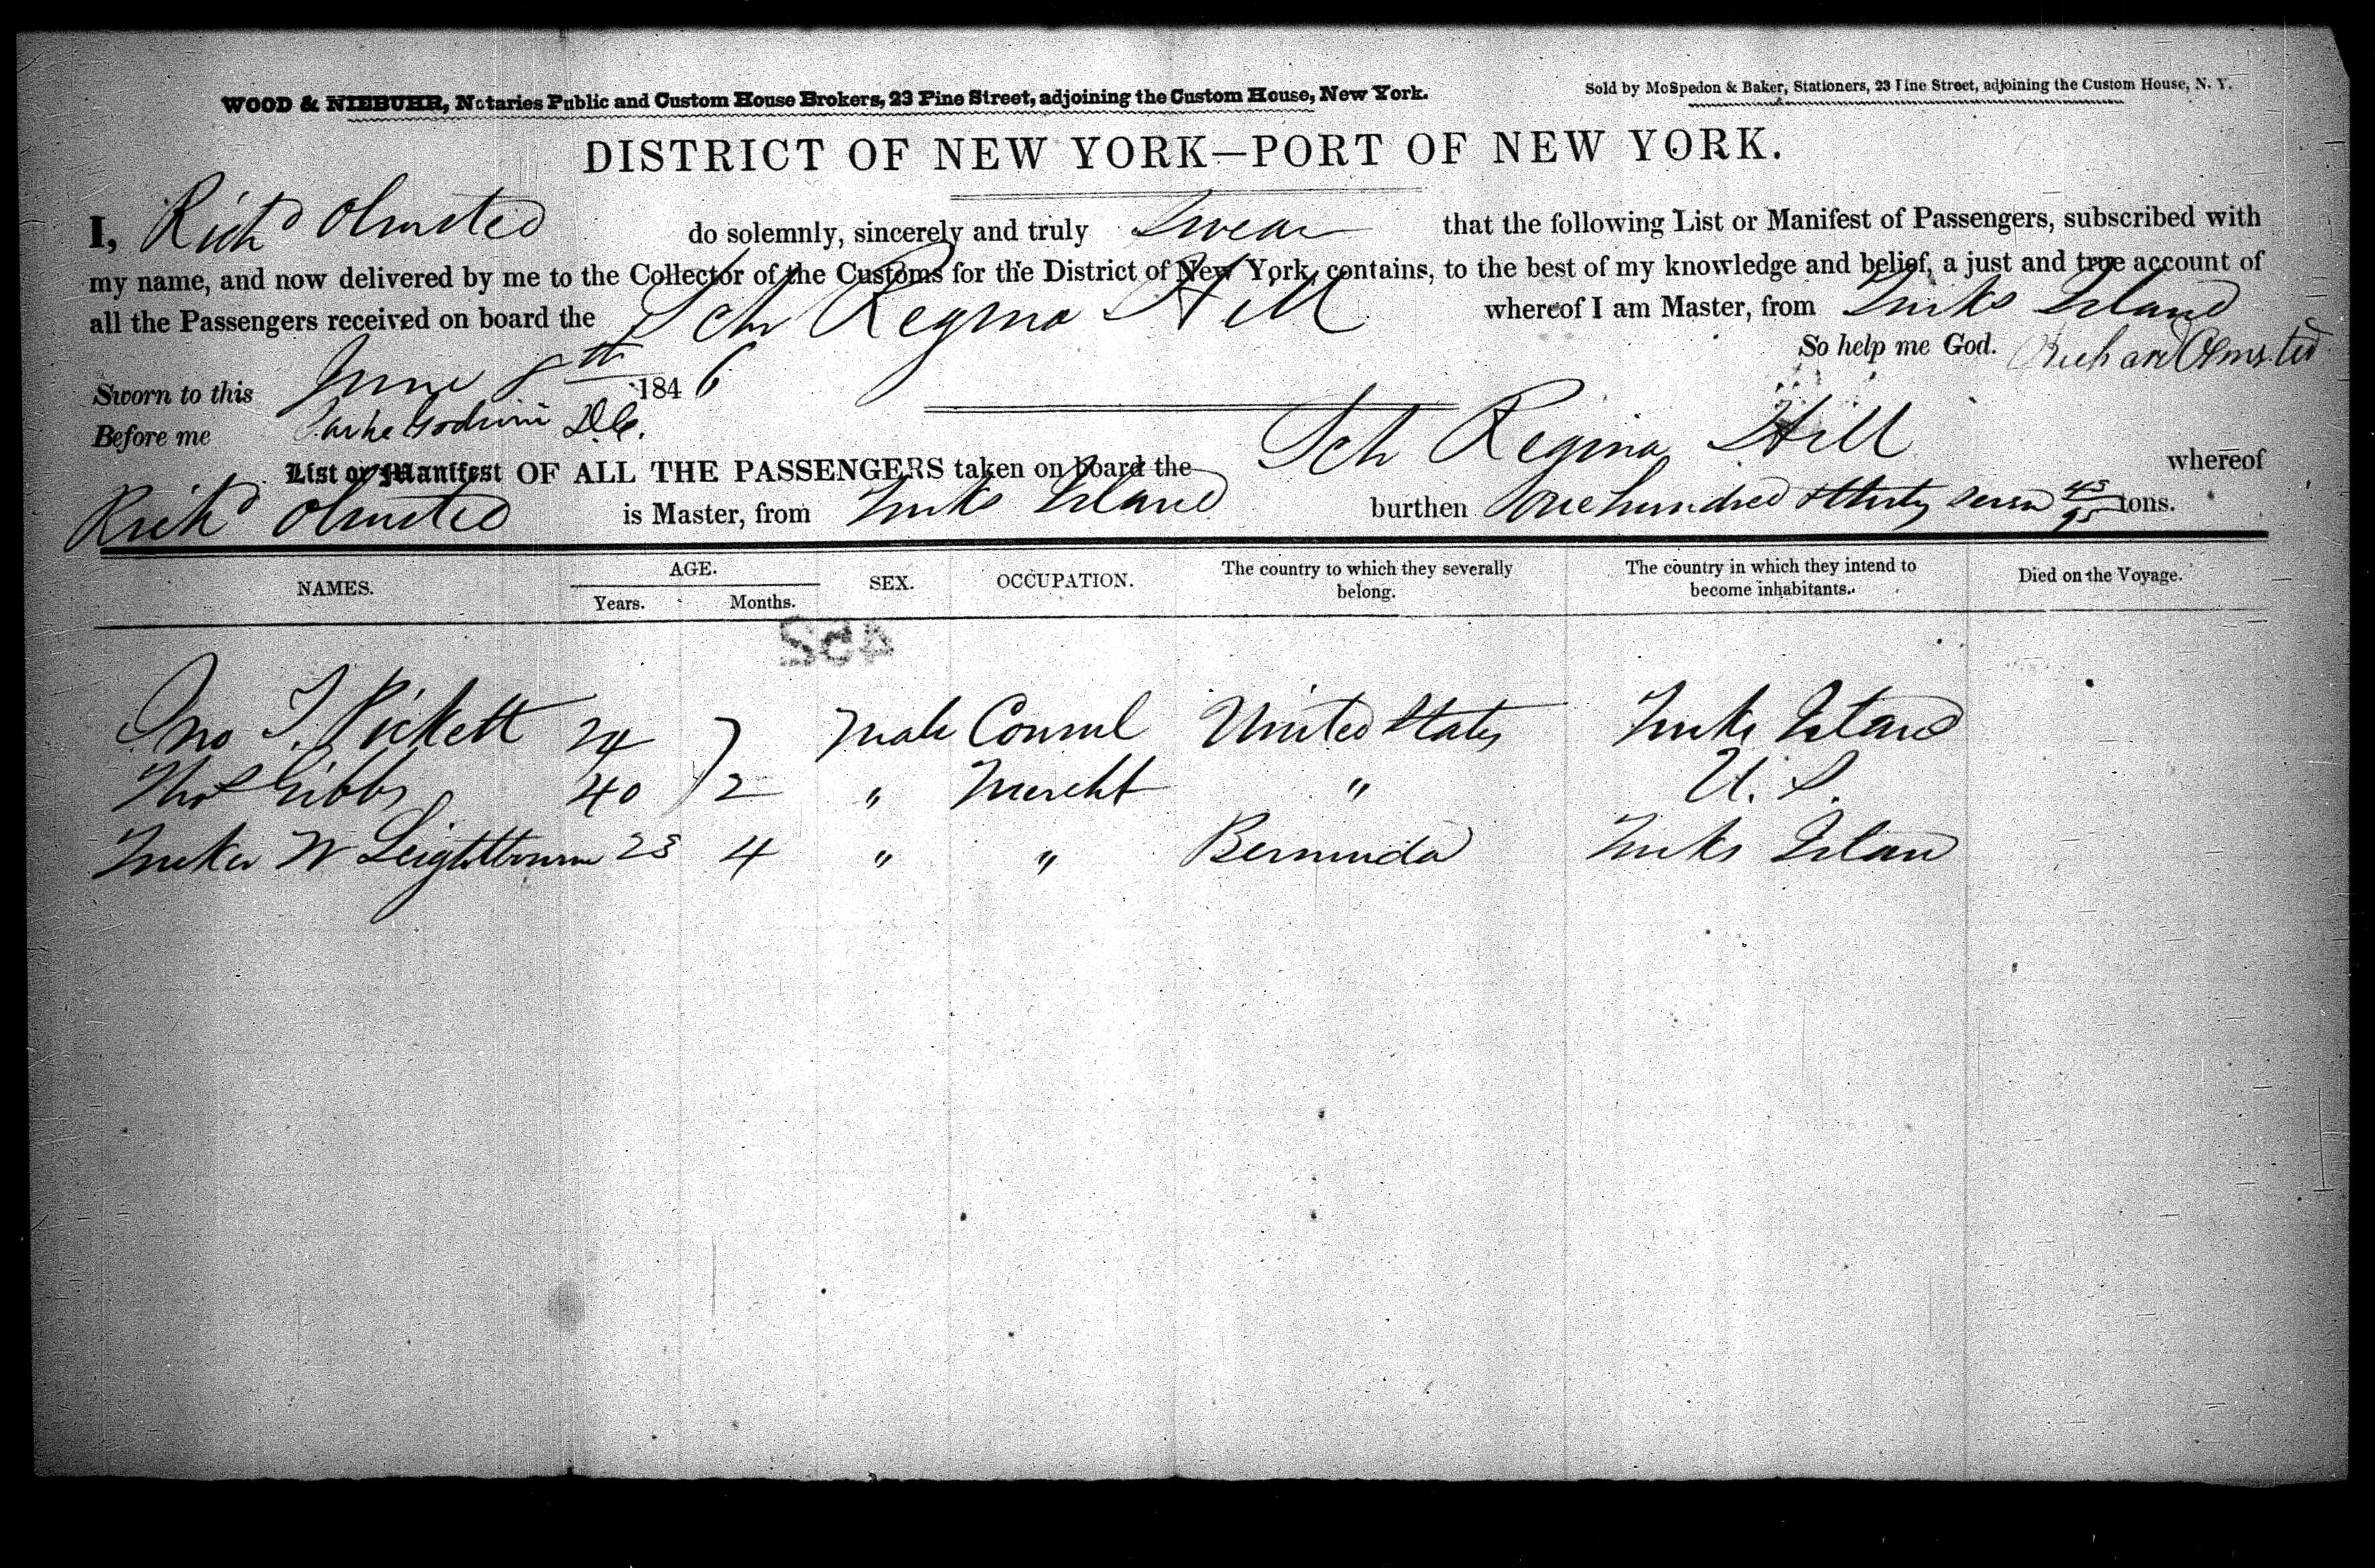 WOOD & NIEBUHR, Notaries Public and Custom House Brokers, 23 Pine Street, adjoining the Custom House, New York.
Sold by McSpedon & Baker, Stationers, 23 Pine Street, adjoining the Custom House, N. Y.
DISTRICT OF NEW YORK—PORT OF NEW YORK.
I, Richd Olmsted do solemnly, sincerely and truly Swear that the following List or Manifest of Passengers, subscribed with
my name, and now delivered by me to the Collector of the Customs for the District of New York, contains, to the best of my knowledge and belief, a just and true account of
all the Passengers received on board the Sch Regina Hill whereof I am Master, from Turks Island
So help me God. Richard Olmsted
Sworn to this June 8th 1846
Before me Parke Godwin D.C.
List or Manifest OF ALL THE PASSENGERS taken on board the Sch Regina Hill whereof
Richd Olmsted is Master, from Turks Island burthen One hundred & thirty seven 45/95 tons.
NAMES. AGE. SEX. OCCUPATION. The country to which they severally belong. The country in which they intend to become inhabitants. Died on the Voyage.
Years. Months.
452
Jno T. Pickett 24 7 Male Consul United States Turks Island
Thos Gibbs 40 2 " Mercht " U. S.
Tucker W Leightbourn 23 4 " " Bermuda Turks Islan